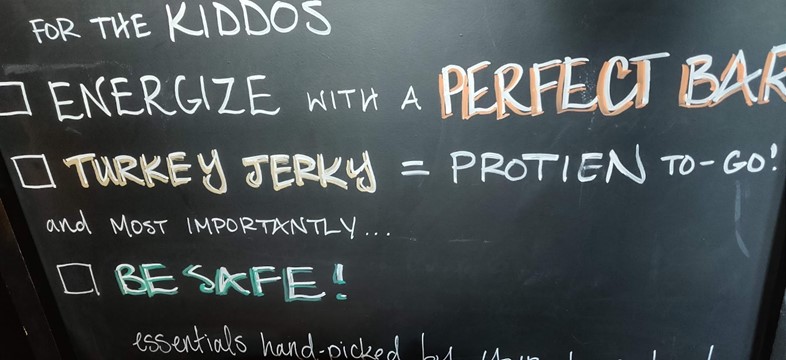 FOR THE KIDDOS
ENERGIZE WITH A PERFECT BAR
TURKEY JERKY = PROTIEN TO-GO!
and MOST IMPORTANTLY...
BE SAFE!
essentials hand-picked by